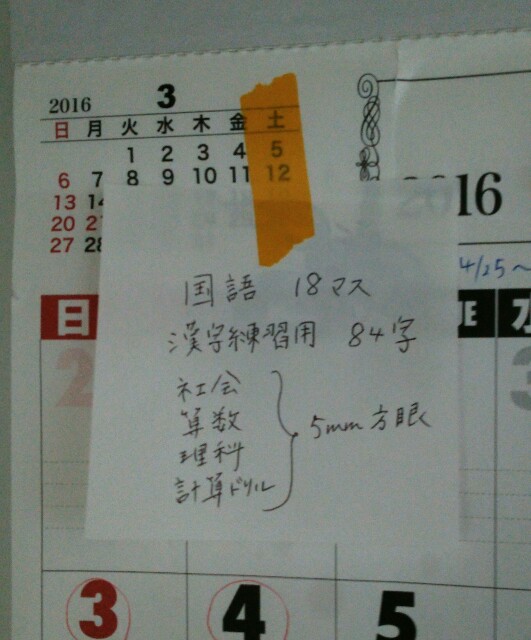 2016 3
日 月 火 水 木 金 土
1 2 3 4 5
6 7 8 9 10 11 12
13 14
20 21
27 28
2016
4/25〜
国語 18マス
漢字練習用 84字
社会
算数
理科
計算ドリル
5mm方眼
日
水
2
3
3 4 5